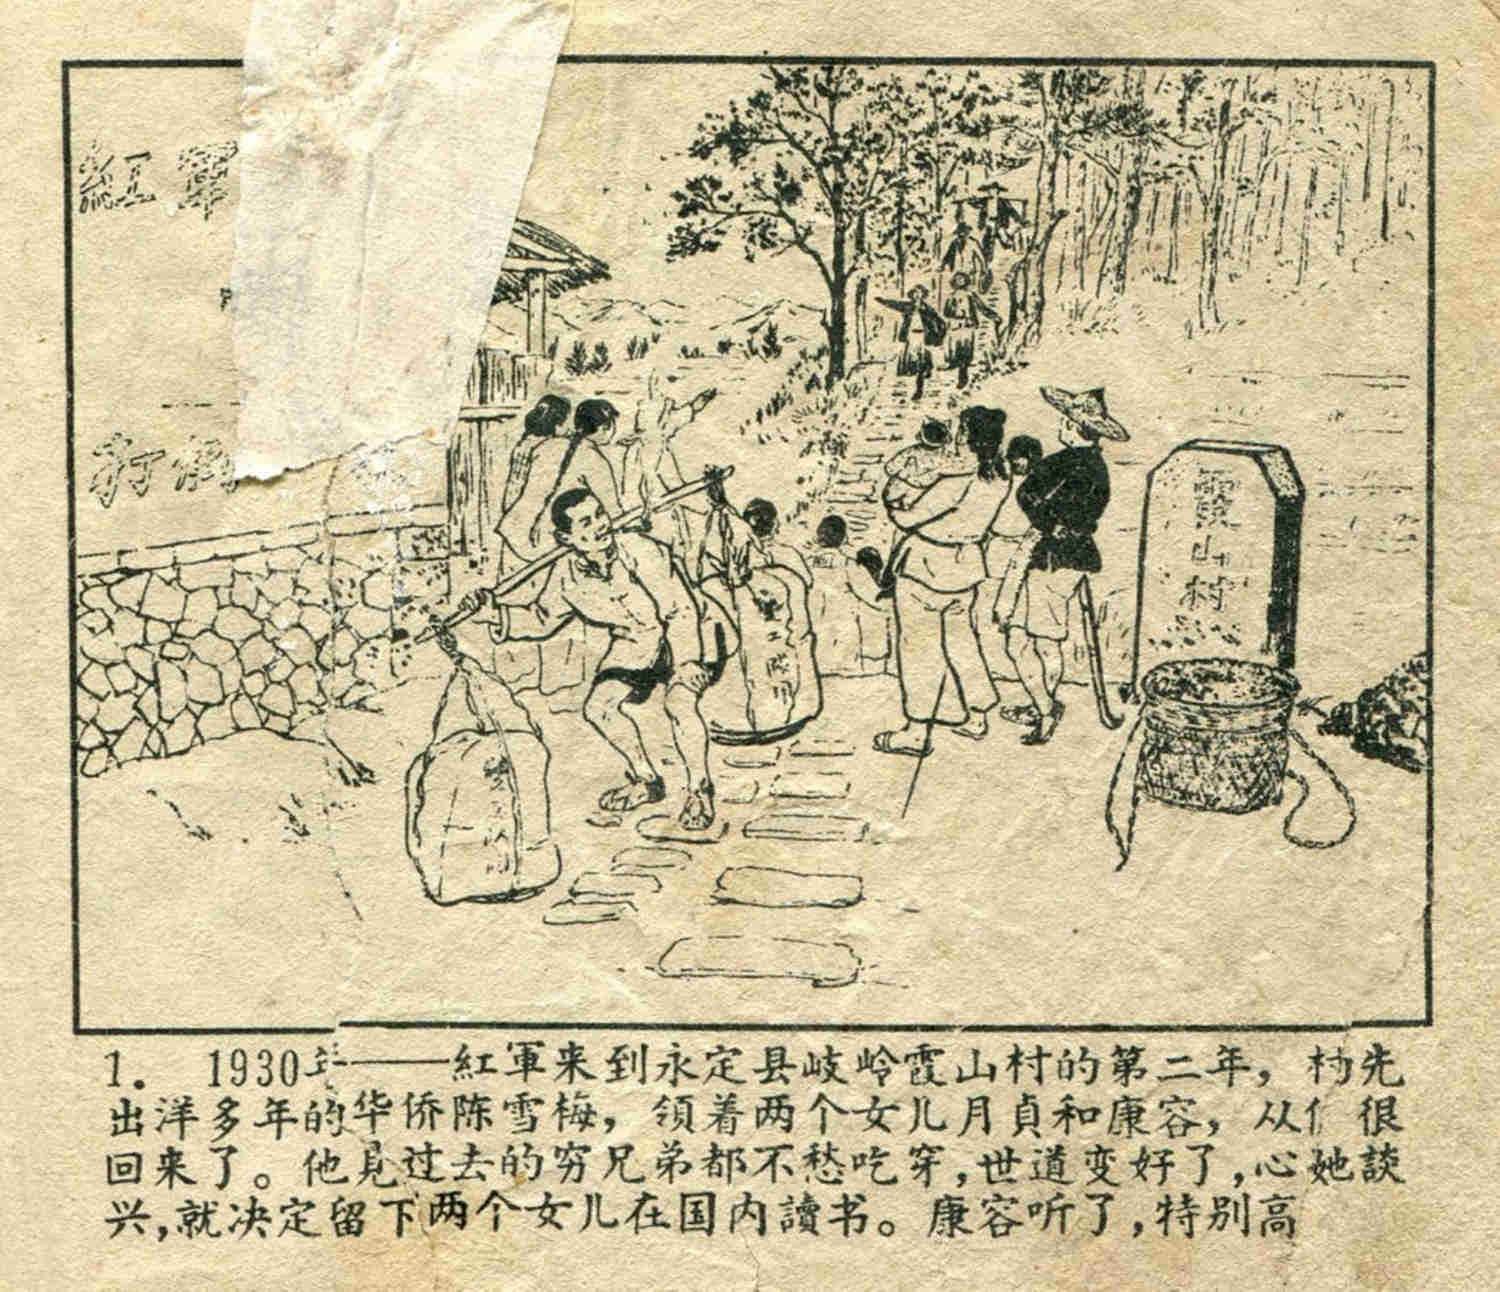 紅軍
打
霞山村
1. 1930年——紅軍来到永定县岐岭霞山村的第二年，村先
出洋多年的华侨陈雪梅，領着两个女儿月貞和康容，从 很
回来了。他見过去的穷兄弟都不愁吃穿，世道变好了，心她談
兴，就决定留下两个女儿在国内讀书。康容听了，特别高